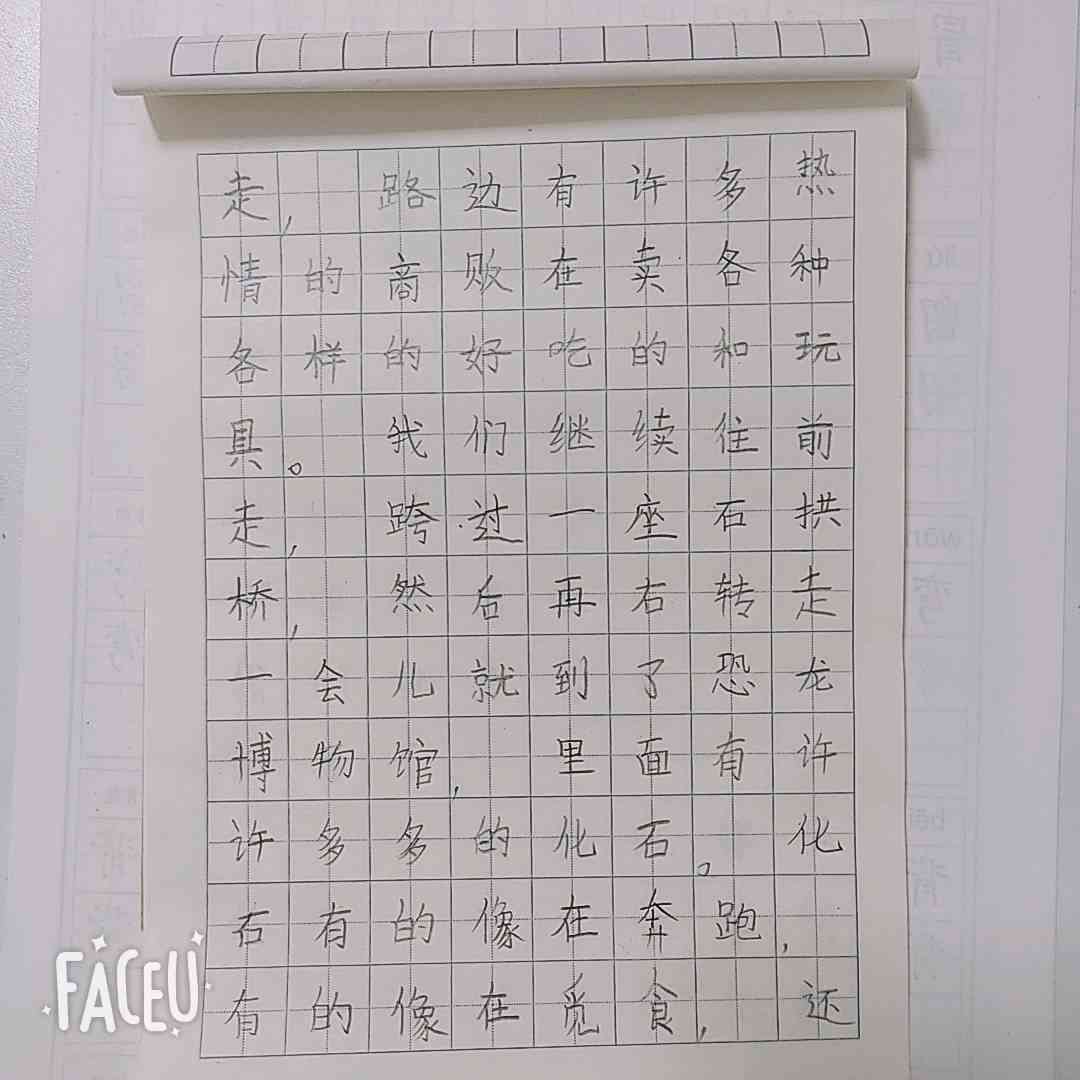 走，路边有许多热
情的商败在卖各种
各样的好吃的和玩
具。我们继续往前
走，跨过一座石拱
桥，然后再右转走
一会儿就到了恐龙
博物馆，里面有许
许多多的化石。化
石有的像在奔跑，
有的像在觅食，还
FACEU